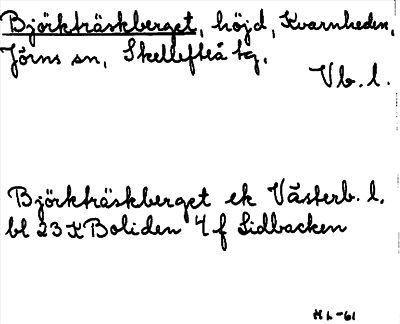 Björkträskberget, höjd, Kvarnheden,
Jörns sn, Skellefteå tg.
Vb. l.
Björkträskberget ek Västerb. l.
bl 23 K Boliden 4 f Lidbacken
H L-61